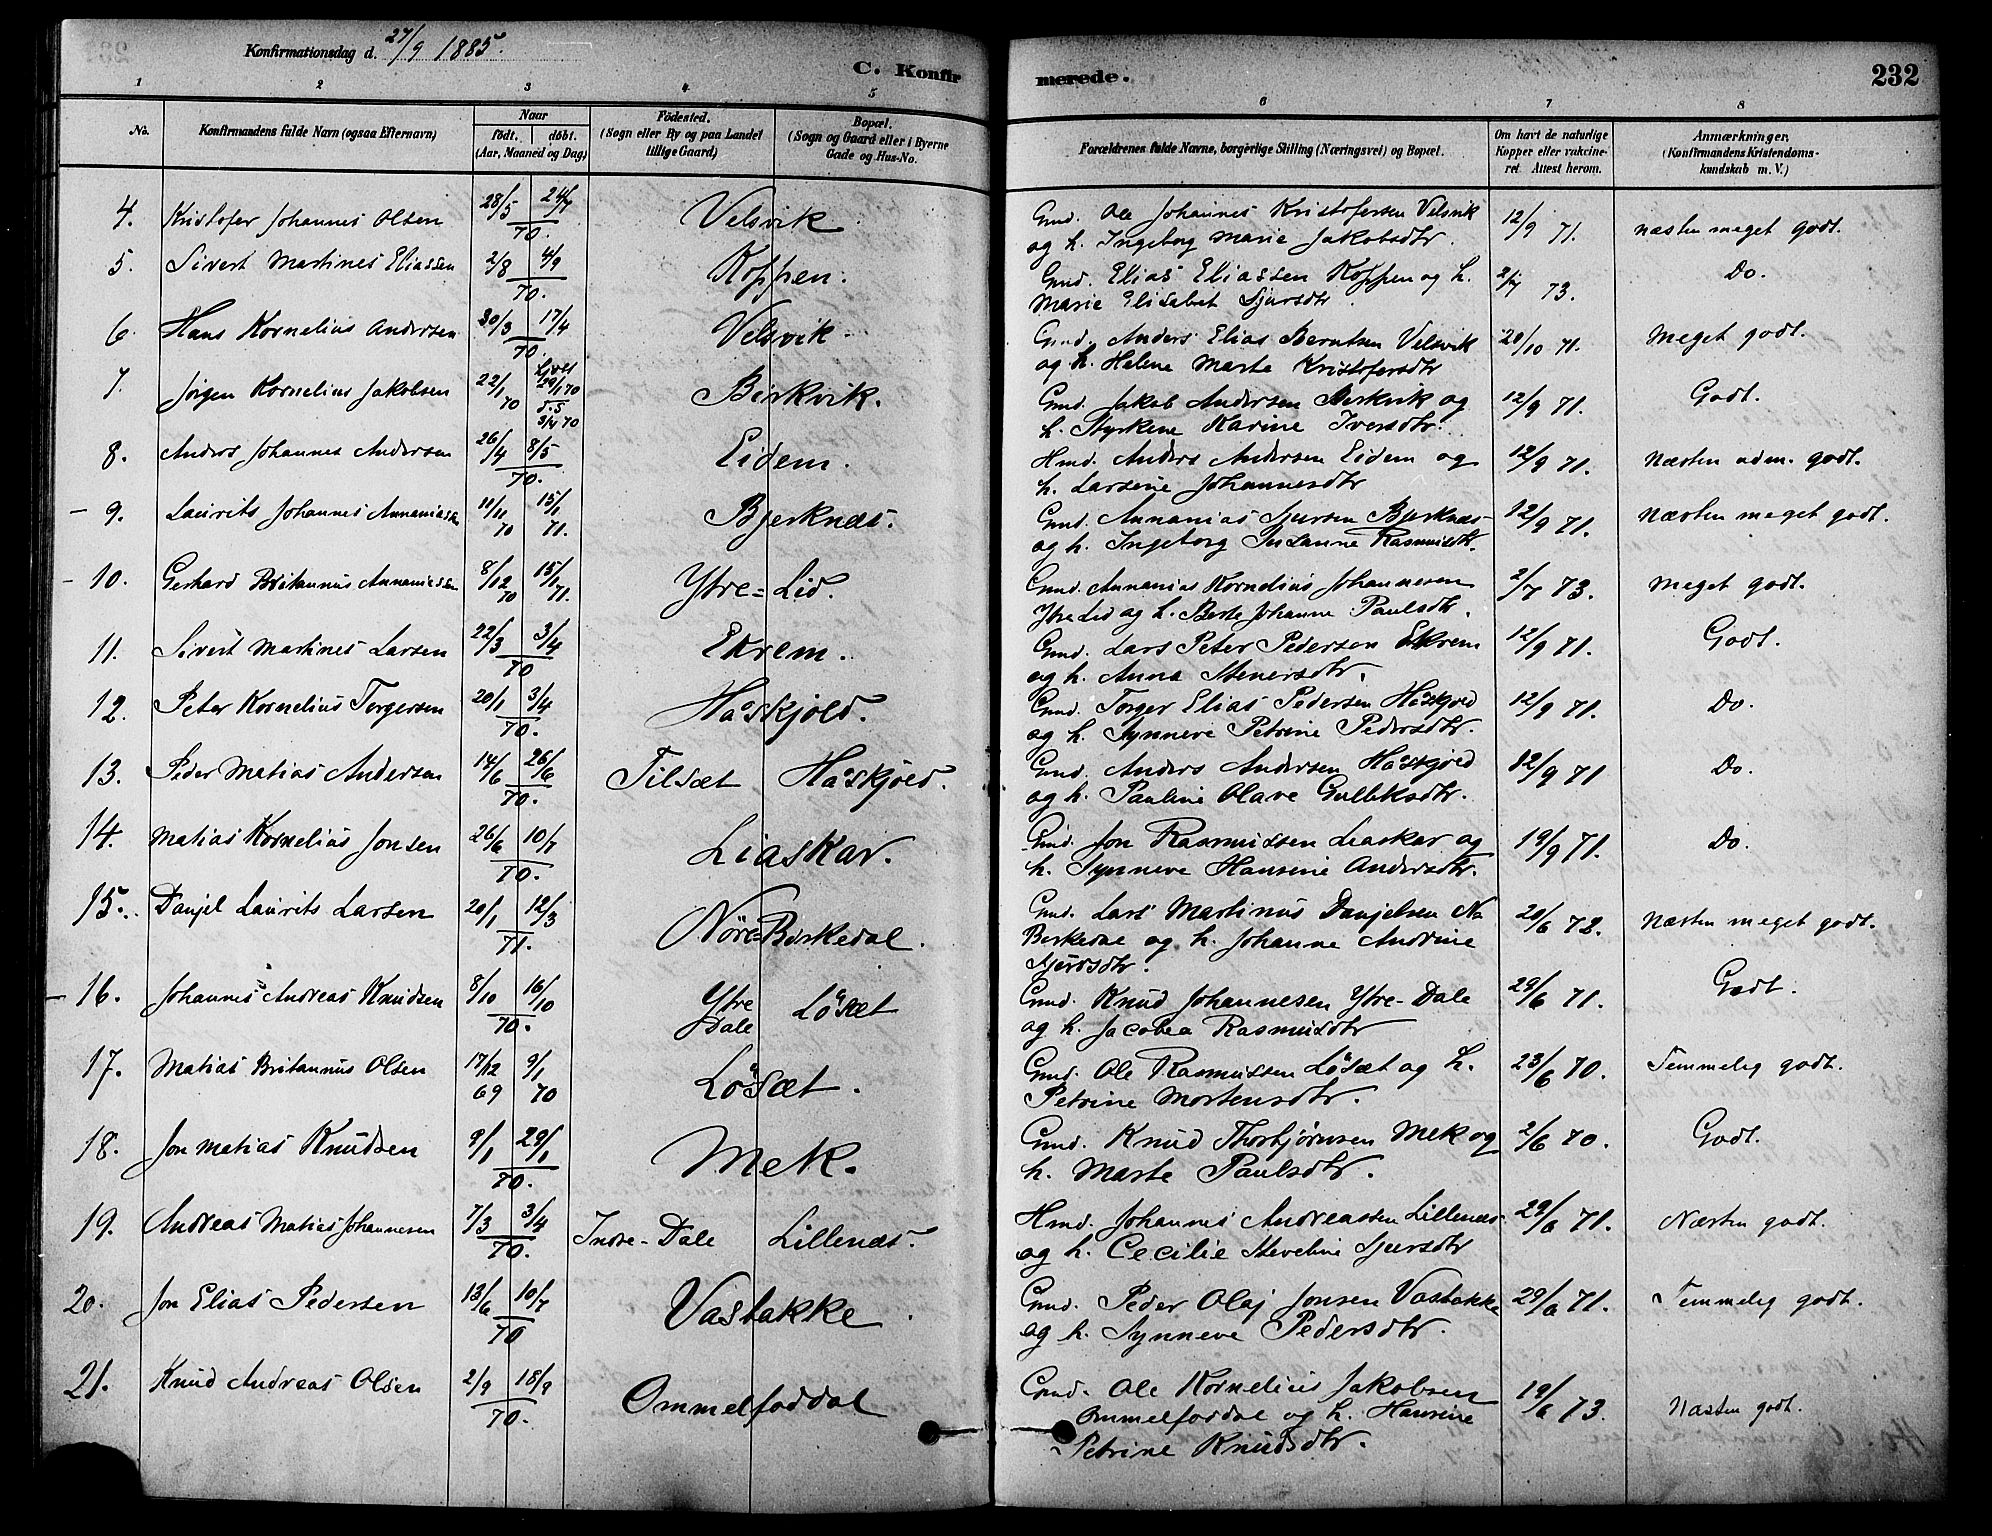 Konfirmationsdag d. 27/9 1885.
C. Konfir
merede.
232
1 2 3 4 5 6 7 8
No. Konfirmandens fulde Navn (ogsaa Efternavn) Naar Födested. Bopæl. Forældrenes fulde Navne, borgerlige Stilling (Næringsvei) og Bopæl. Om havt de naturlige Anmærkninger,
födt. döbt. (Sogn eller By og paa Landet (Sogn og Gaard eller i Byerne Kopper eller vakcine- (Konfirmandens Kristendoms-
(Aar, Maaned og Dag) tillige Gaard) Gade og Hus-No. ret Attest herom. kundskab m. V.)
4. Kristofer Johannes Olsen 28/5 24/7 70. Velsvik Gmd. Ole Johannes Kristofersen Velsvik 12/9 71. næsten meget godt.
og h. Ingeborg Marie Jakobsdtr.
5. Sivert Martines Eliassen 2/8 4/9 70. Koppen. Gmd. Elias Eliassen Koppen og h. 2/7 73. Do.
Marie Elisabet Sjursdtr.
6. Hans Kornelius Andersen 30/3 17/4 70. Velsvik. Gmd. Anders Elias Berntsen Velsvik 20/10 71. Meget godt.
og h. Helene Marte Kristofersdtr
7. Jørgen Kornelius Jakobsen 22/1 70 29/1 70 3/4 70 Birkvik. Gmd. Jakob Andersen Birkvik og 12/9 71. Godt.
h. Styrkene Karine Iversdtr.
8. Anders Johannes Andersen 26/4 8/5 70. Eidem. Hmd. Anders Andersen Eidem og 12/9 71. Næsten udm. godt.
h. Larsine Johannesdtr
- 9. Laurits Johannes Annaniassen 11/11 70 15/1 71. Bjerknæs. Gmd. Annanias Sjursen Bjerknæs 12/9 71. Næsten meget godt.
og h. Ingeborg Susanne Rasmusdtr.
- 10. Gerhard Britannus Annaniassen 8/12 70 15/1 71. Ytre=Lid. Gmd. Annanias Kornelius Johannesen 2/7 73. Meget godt.
Ytre Lid og h. Berte Johanne Paulsdtr.
11. Sivert Martines Larsen 22/3 3/4 70 Ekrem. Gmd. Lars Peter Pedersen Ekrem 12/9 71. Godt.
og h. Anna Stenersdtr.
12. Peter Kornelius Torgersen 20/1 3/4 70. Håskjold. Gmd. Torger Elias Pedersen Håskjold 12/9 71. Do.
og h. Synneve Petrine Pedersdtr.
13. Peder Matias Andersen 14/6 26/6 70. Tilsæt Håskjold. Gmd. Anders Andersen Håskjold 12/9 71 Do.
og h. Pauline Olave Gulliksdtr.
14. Matias Kornelius Jonsen 26/6 10/7 70. Liaskar. Gmd. Jon Rasmussen Liaskar og 19/9 71. Do.
h. Synneve Hansine Andersdtr.
15. Danjel Laurits Larsen 20/1 12/3 71. Nöre=Birkedal. Gmd. Lars Martinus Danjelsen N. 20/6 72. Næsten meget godt.
Birkedal og h. Johanne Andrine
Sjursdtr.
- 16. Johannes Andreas Knudsen 8/10 16/10 70. Ytre Dale Løsæt Gmd. Knud Johannesen Ytre-Dale 29/6 71. Godt.
og h. Jacobea Rasmusdtr
17. Matias Britannus Olsen 17/12 69 9/1 70 Løsæt. Gmd. Ole Rasmussen Løsæt og h. 23/6 70. Temmelig godt.
Petrine Mortensdtr.
18. Jon Matias Knudsen 9/1 29/1 70. Mek. Gmd. Knud Thorbjørnsen Mek og 2/6 70. Godt.
h. Marte Paulsdtr.
19. Andreas Matias Johannesen 7/3 3/4 70. Indre-Dale Lillenæs. Hmd. Johannes Andreassen Lillenæs 29/6 71. Næsten godt.
og h. Cecilie Steveline Sjursdtr
20. Jon Elias Pedersen 13/6 10/7 70 Vastakke. Gmd. Peder Olaj Jonsen Vastakke 29/6 71. Temmelig godt.
og h. Synneve Pedersdtr.
21. Knud Andreas Olsen 2/9 18/9 70. Ommelfoddal Gmd. Ole Kornelius Jakobsen 19/6 73. Næsten godt.
Ommelfoddal og h. Hansine
Petrine Knudsdtr.